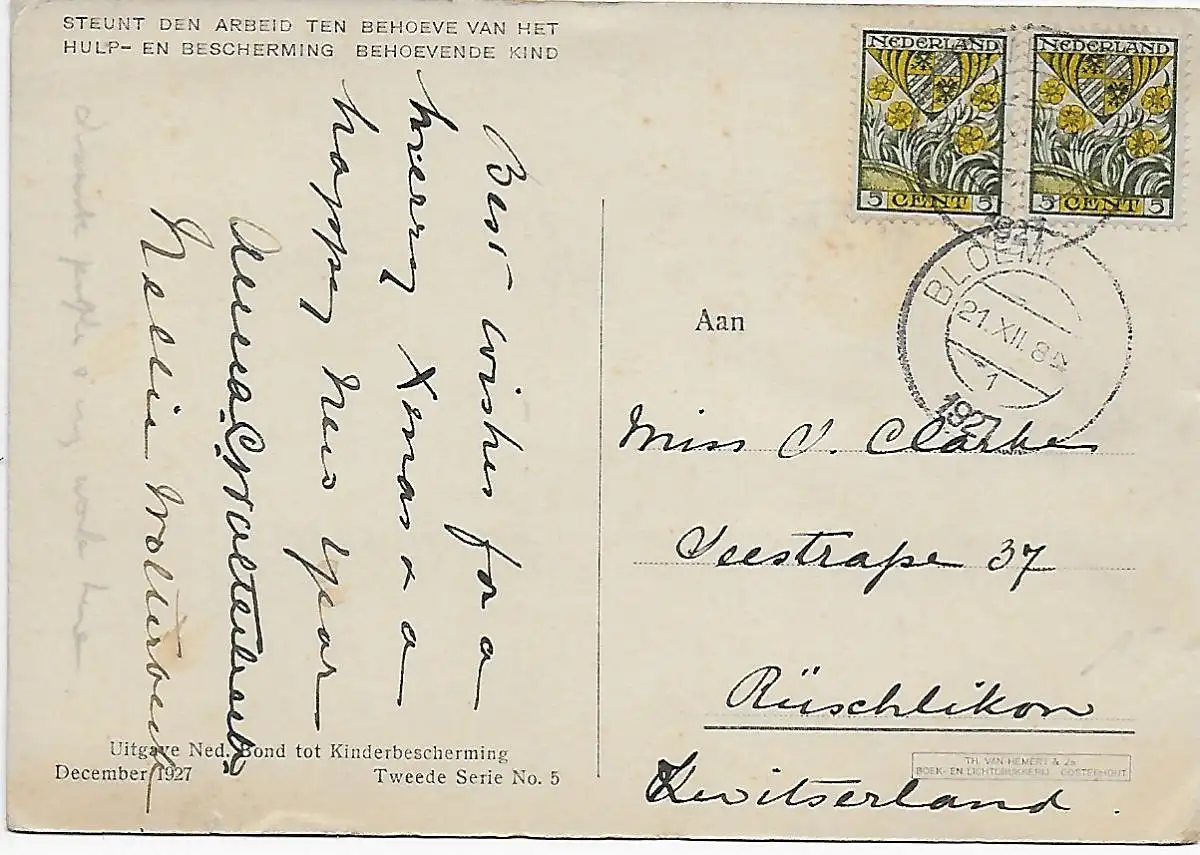 STEUNT DEN ARBEID TEN BEHOEVE VAN HET
HULP- EN BESCHERMING BEHOEVENDE KIND
Best wishes for a
merry Xmas & a
happy New Year
Nellie
NEDERLAND
5 CENT 5
NEDERLAND
5 CENT 5
1927
BLOEM
21.XII.8
1
1927
Aan
Miss V. Clarke
Seestraße 37
Rüschlikon
Zwitserland.
Uitgave Ned. Bond tot Kinderbescherming
December 1927
Tweede Serie No. 5
TH. VAN HEMERT & Zn
BOEK- EN LICHTDRUKKERIJ OOSTERHOUT